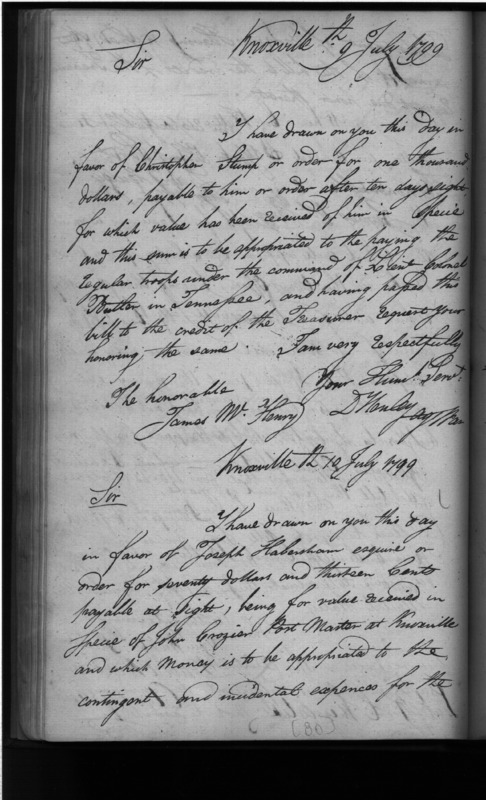 Knoxville 9th July 1799
Sir
I have drawn on you this day in
favor of Christopher Stump or order for one thousand
dollars, payable to him or order after ten days sight
for which value has been received of him in Specie
and this sum is to be appropriated to the paying the
regular troops under the command of Lieut Colonel
Butler in Tennessee, and having passed this
bill to the credit of the Treasurer request your
honoring the same. I am very respectfully
Your Humb. Servt.
The honorable
D Henley
James Mc. Henry
Knoxville 12th July 1799
Sir
I have drawn on you this day
in favor of Joseph Habersham esquire or
order for seventy dollars and thirteen Cents
payable at Sight, being for value received in
Specie of John Crozier Post Master at Knoxville
and which money is to be appropriated to the
contingent and incidental expences for the
(80)